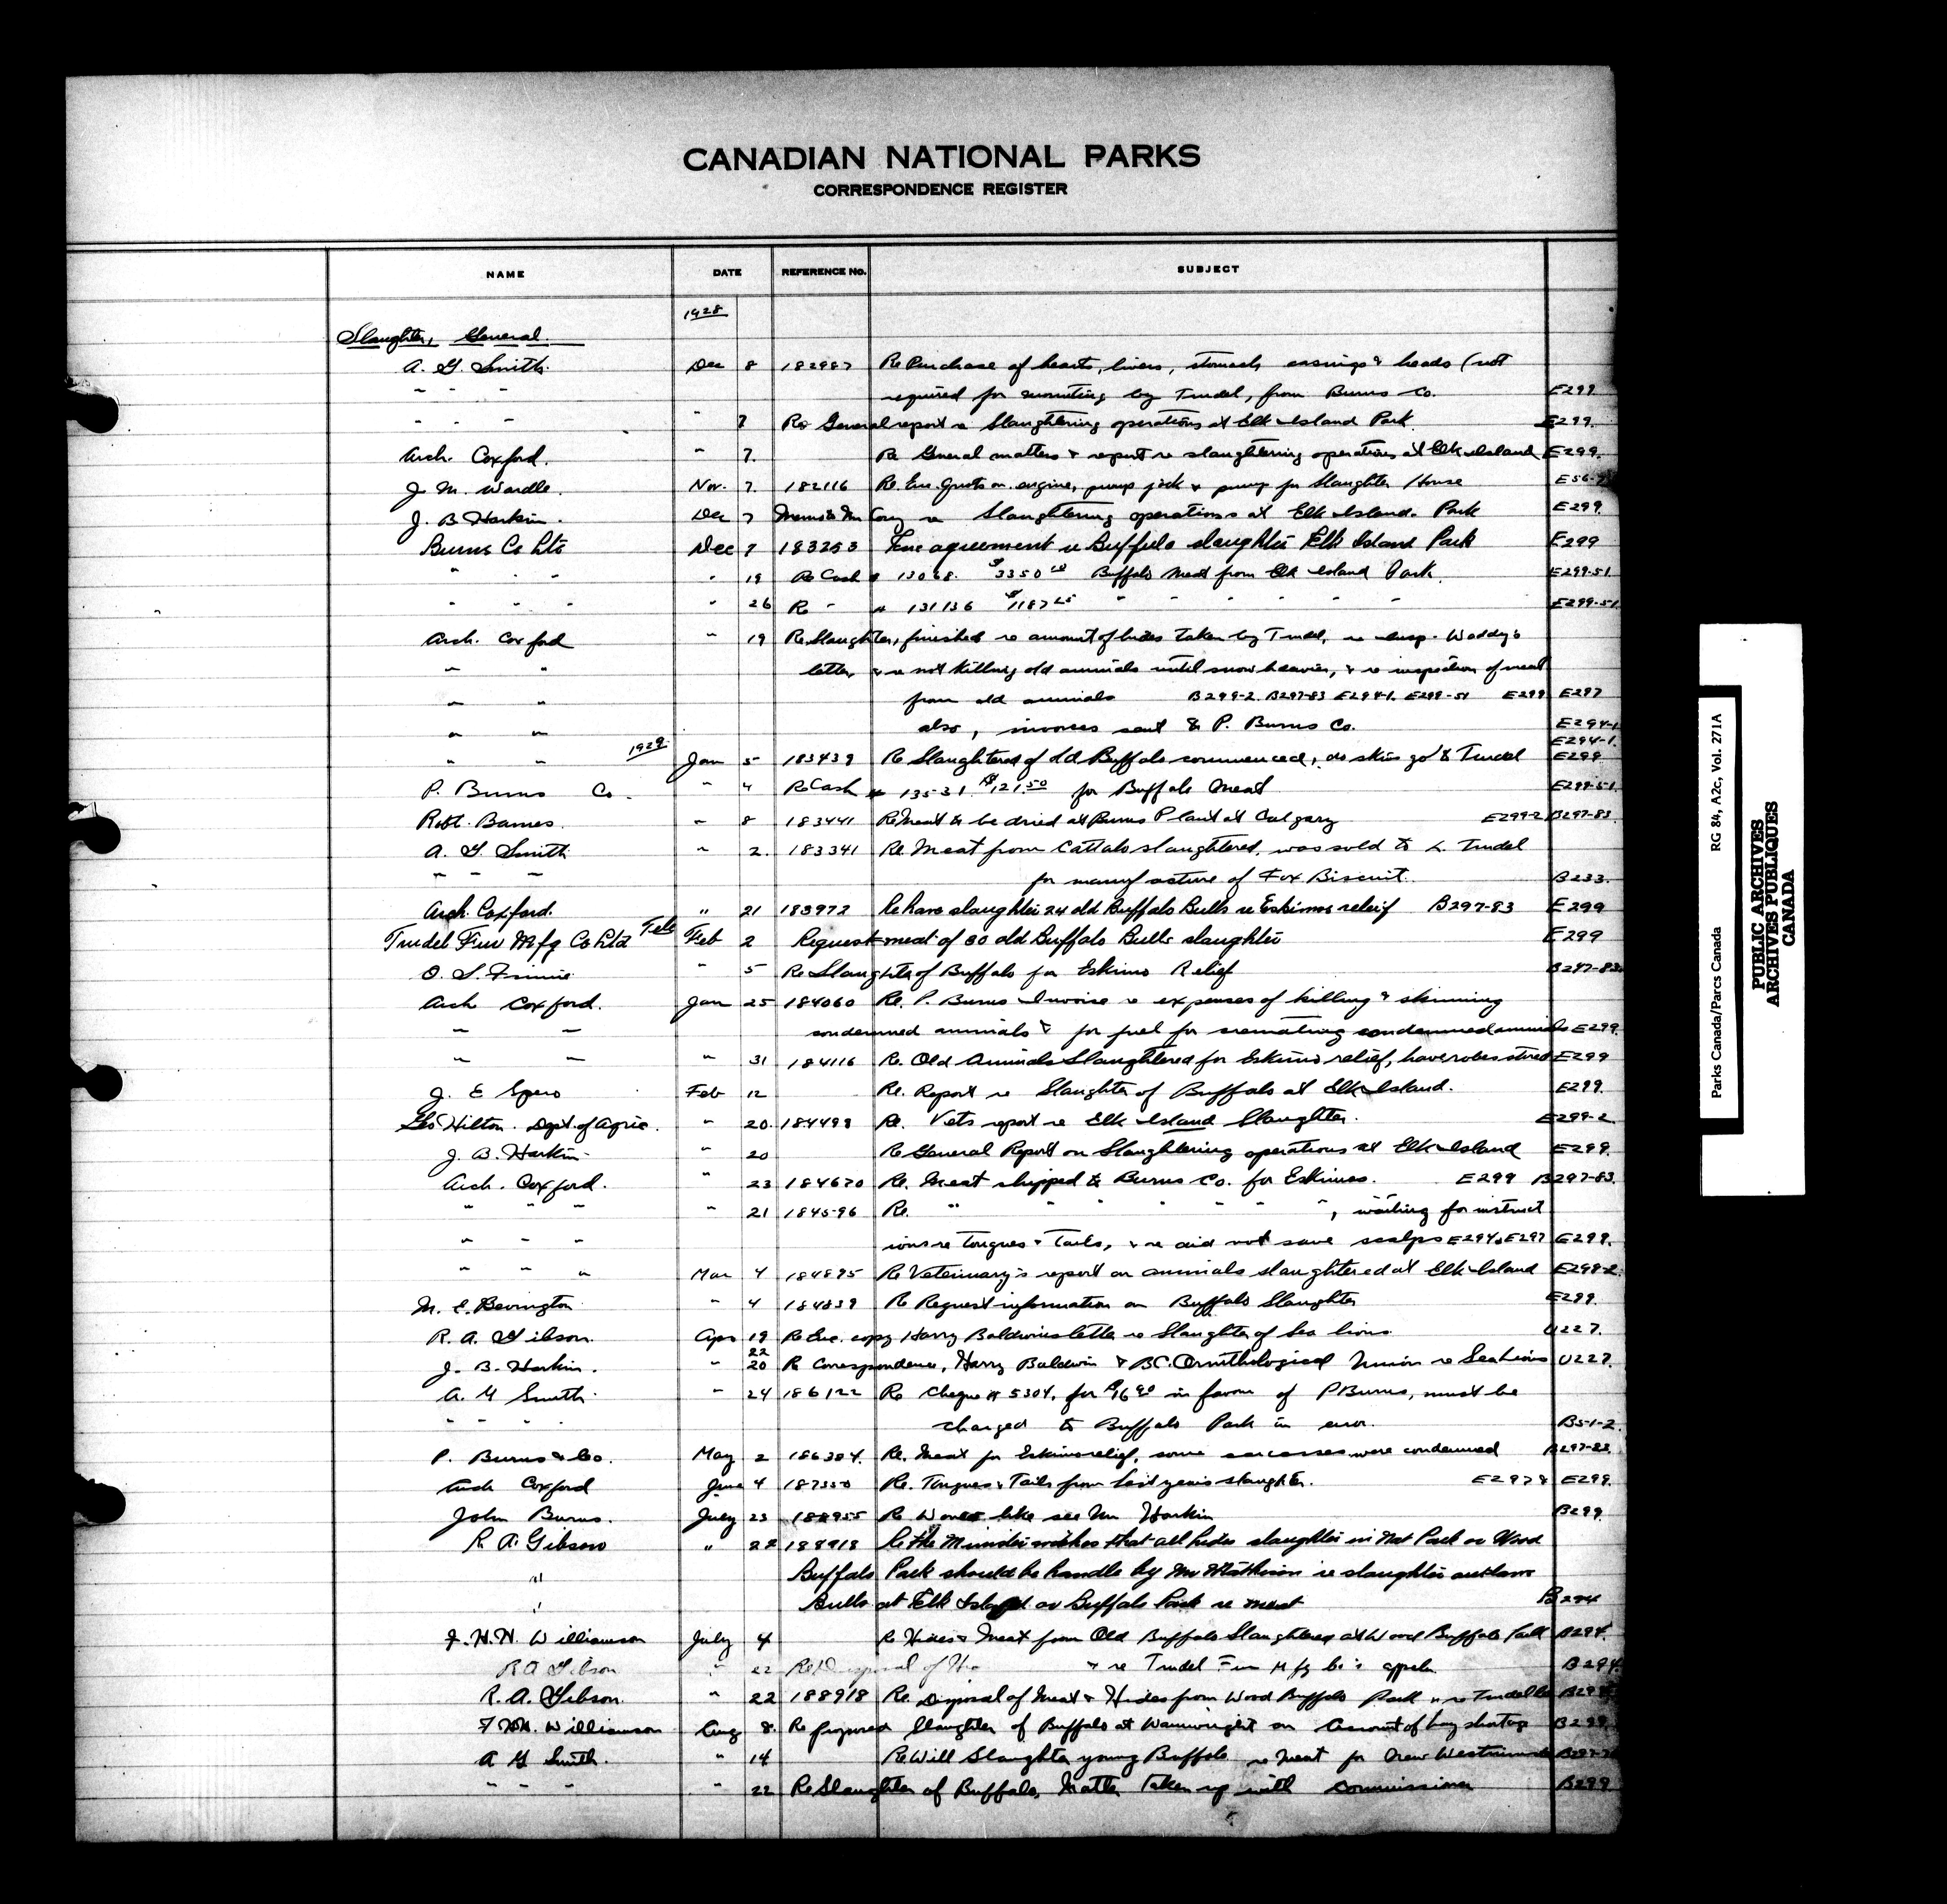 CANADIAN NATIONAL PARKS
CORRESPONDENCE REGISTER
NAME DATE REFERENCE No. SUBJECT
1928
Slaughter, General.
A. G. Smith. Dec 8 182987 Re Purchase of hearts, livers, stomach casings & heads (not
" " " required for mounting by Trudel, from Burns Co. E299
" " " " 7 Re General report re Slaughtering operations at Elk Island Park. E299.
Arch. Coxford. " 7. Re General matters & report re slaughtering operations at Elk Island E299.
J. M. Wardle. Nov. 7. 182116 Re. Enc. quots on engine, pump jack & pump for Slaughter House E56-7
J. B. Harkin. Dec 7 Memo to Mr Cory re Slaughtering operations at Elk Island Park E299.
Burns Co Ltd Dec 7 183253 Enc agreement re Buffalo slaughter Elk Island Park E299
" " " " 19 Re Cash # 13068. $3350 Buffalo Meat from Elk Island Park. E299-51
" " " " 26 Re " # 131136 $1187 25 " " " " " " E299-51
Arch. Coxford " 19 Re Slaughter, finished re amount of hides taken by Trudel, re Insp. Waddy's
" " letter, & re not killing old animals until snow heavier, & re inspection of meat
" " from old animals B299-2. B297-83 E294-1. E299-51 E299 E297
" " also, invoices sent to P. Burns Co. E294-1
1929 E294-1.
" " Jan 5 183439 Re Slaughtered of old Buffalo commenced, do skins go to Trudel E299
P. Burns Co. " 4 Re Cash # 13531. $121.50 for Buffalo Meat E299-51
Robt. Barnes. " 8 183441 Re Meat to be dried at Burns Plant at Calgary E299-2 B297-83.
A. G. Smith " 2. 183341 Re. Meat from Cattalo slaughtered, was sold to L. Trudel
" " " for manufacture of Fox Biscuit. B233.
Arch. Coxford. " 21 183972 Re have slaughter 24 old Buffalo Bulls re Eskimos releif B297-83 E299
Trudel Fur Mfg Co Ltd Feb Feb 2 Request meat of 30 old Buffalo Bulls slaughter E299
O. S. Finnie " 5 Re Slaughter of Buffalo for Eskimo Relief B297-83.
Arch Coxford. Jan 25 184060 Re. P. Burns Invoice re expenses of killing & skinning
" " condemned animals & for fuel for cremating condemned animals E299.
" " " 31 184116 Re. Old Animals Slaughtered for Eskimo relief, have robes stored E299
J. E Spero Feb 12 Re. Report re Slaughter of Buffalo at Elk Island. E299.
Geo Hilton. Dept. of Agric. " 20. 184499 Re. Vets report re Elk Island Slaughter. E299-2
J. B. Harkin " 20 Re General Report on Slaughtering operations at Elk Island E299.
Arch. Coxford. " 23 184670 Re. Meat shipped to Burns Co. for Eskimos. E299 B297-83.
" " " " 21 184596 Re. " " " " " " , waiting for instruct
" " " ions re Tongues & Tails, & re did not save scalps E294, E297 E299.
" " " Mar 4 184895 Re Veterinary's report on animals slaughtered at Elk Island E299-2.
M. E. Bevington " 4 184839 Re Request information on Buffalo Slaughter E299.
R. A. Gibson. Apr 19 Re Enc. copy Harry Baldwins letter re Slaughter of Sea lions. U227.
22
J. B. Harkin. " 20 Re Correspondence, Harry Baldwin & BC. Ornithological Union re Sea Lions U227.
A. G Smith. " 24 186122 Re Cheque # 5304, for $16 90 in favour of P Burns, must be
" " " charged to Buffalo Park in error. B51-2.
P. Burns & Co. May 2 186304. Re. Meat for Eskimo relief, some carcasses were condemned B297-83.
Arch Coxford June 4 187350 Re. Tongues & Tails from last years slaughter. E297 & E299.
John Burns. July 23 188955 Re Would like see Mr Harkin B299.
R. A. Gibson " 22 188918 Re the Minister wishes that all hides slaughter in Nat Park or Wood
" Buffalo Park should be handle by Mr Mathison re slaughter outlaw
" Bulls at Elk Island or Buffalo Park re meat B294
F. H. H. Williamson July 4 Re Hides & Meat from Old Buffalo Slaughtered at Wood Buffalo Park B294.
R A Gibson " 22 Re Disposal of & re Trudel Fur Mfg Co's B294.
R. A. Gibson. " 22 188918 Re. Disposal of Meat & Hides from Wood Buffalo Park & re Trudel Co B294
F H H. Williamson Aug 8. Re proposed Slaughter of Buffalo at Wainwright on account of hay shortage B299
A G Smith. " 14 Re Will Slaughter young Buffalo re Meat for New Westminster
" " " " 22 Re Slaughter of Buffalo, Matter Taken up with commissioner B299
Parks Canada/Parcs Canada RG 84, A2c, Vol. 271A
PUBLIC ARCHIVES
ARCHIVES PUBLIQUES
CANADA